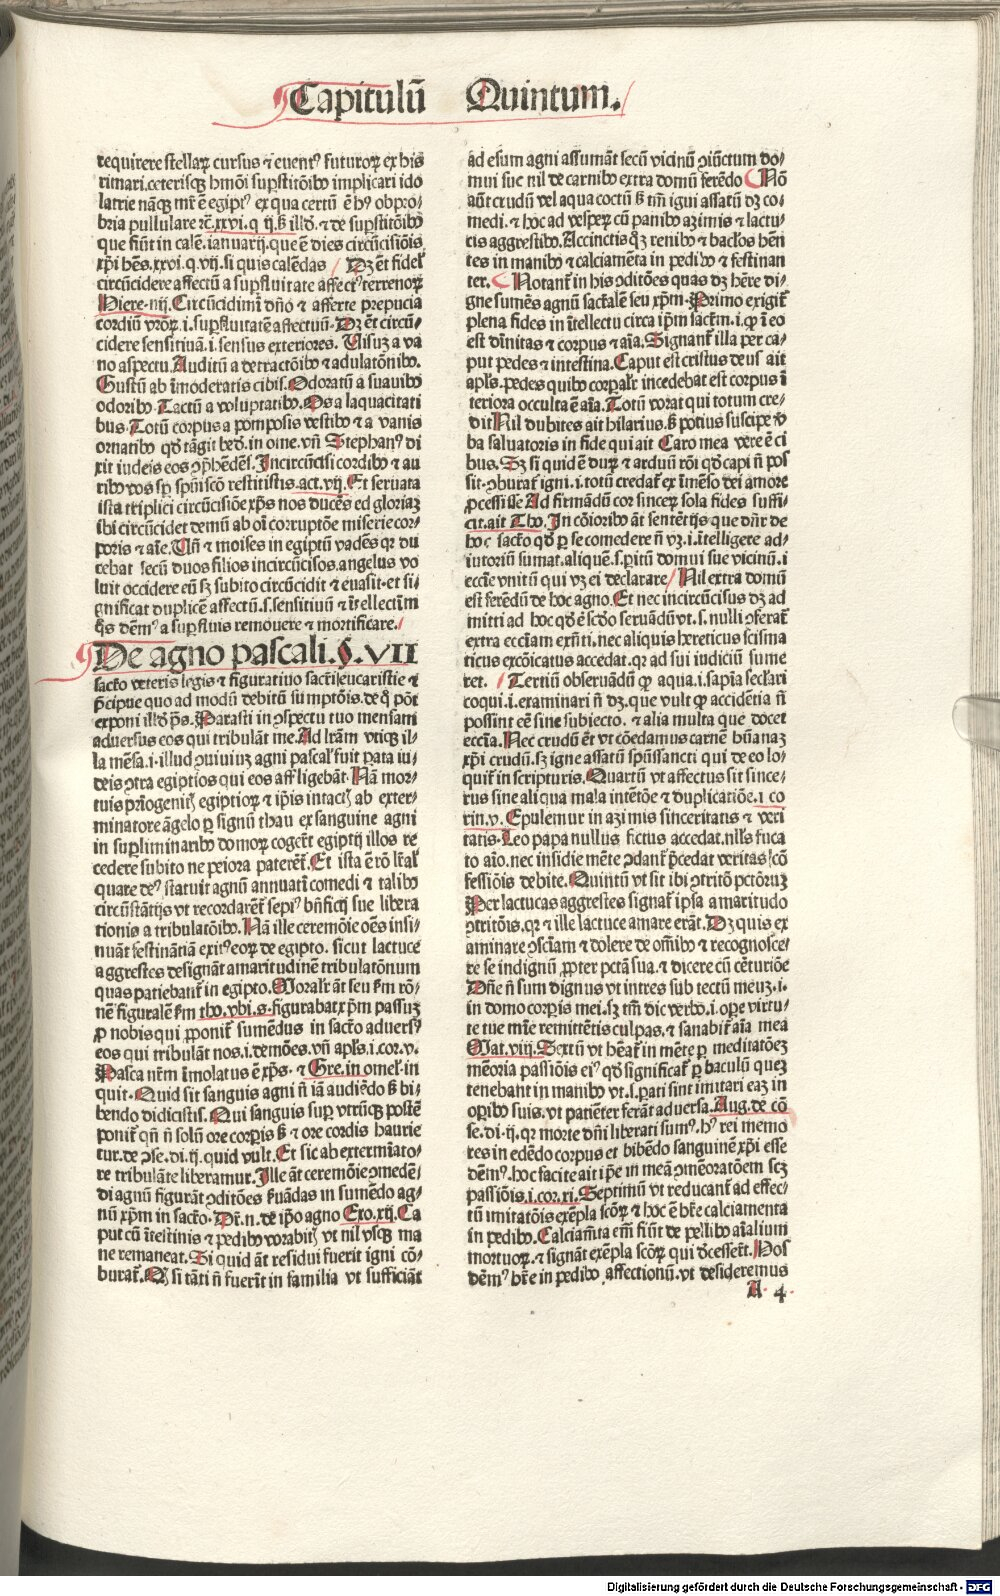 Capitulū Quintum.
requirere stellaꝝ cursus ⁊ euentꝰ futuroꝝ ex his
rimari. ceterisqꝫ hmōi supstitōibꝰ implicari ido
latrie nāqꝫ mr̄ ē egiptꝰ ex qua certū ē hꝰ obpro⸗
bria pullulare rc̄. xxvi. q ij. ꝑ illd̄. ⁊ de supstitōibꝰ
que fiūt in calē. ianuarij. que ē dies circūcisiōis
xp̄i hēs. xxvi. q. vij. si quis calēdas / Dꝫ ēt fidel̓
circūcidere affectū a supfluitate affectꝰ terrenoꝝ
Hiere. iiij. Circūcidimī dn̄o ⁊ afferte prepucia
cordiū vr̄oꝝ. i. supfluitatē affectuū. Dꝫ ēt circū⸗
cidere sensitiuā. i. sensus exteriores. Visuꝫ a va
no aspectu. Auditū a detractōibꝰ ⁊ adulatōnibꝰ.
Gustū ab īmoderatis cibis. Odoratū a suauibꝰ
odoribꝰ. Tactū a voluptatibꝰ. Os a laquacitati
bus. Totū corpus a pomposis vestibꝰ ⁊ a vanis
ornatibꝰ qd̄ tāgit bed̄. in ome. vn̄ Stephanꝰ di
xit iudeis eos ꝯp̄hēdēs. Incircūcisi cordibꝰ ⁊ au
ribꝰ vos sp̄ spūiscō restitistis. act. vij. Et seruata
ista triplici circūcisiōe xp̄s nos ducēs ed gloriaꝫ
ibi circūcidet demū ab oī corruptōe miserie cor⸗
poris ⁊ aīe. Vn̄ ⁊ moises in egiptū vadēs qꝛ du
cebat secū duos filios incircūcisos. angelus vo
luit occidere eū sꝫ subito circūcidit ⁊ euasit. et si⸗
gnificat duplicē affectū. s. sensitiuū ⁊ ītellectīm
q̄s dēmꝰ a supfluis remouere ⁊ mortificare. /
De agno pascali. §. VII
sacrō veteris legis ⁊ figuratiuo sacrī eucaristie ⁊
p̄cipue quo ad modū debitū sumptōis. de q̄ pōt
exponi illd̄ ps̄. Parasti in ꝯspectu tuo mensam
aduersus eos qui tribulāt me. Ad lr̄am vtiqꝫ il⸗
la mēsa. i. illud ꝯuiuiuꝫ agni pascal̓ fuit parata iu⸗
deis ꝯtra egiptios qui eos affligebāt. Nā mor⸗
tuis prīogenitꝭ egiptioꝝ ⁊ ip̄is intactꝭ ab exter⸗
minatore āgelo ꝑ signū thau ex sanguine agni
in supliminaribꝰ domoꝝ cogeret̄ egiptij illos re
cedere subito ne peiora paterēt̄. Et ista ē rō lr̄al̓
quare deꝰ statuit agnū annuatī comedi ⁊ talibꝰ
circūstātijs vt recordarēt̄ sepiꝰ bn̄ficij sue libera
tionis a tribulatōibꝰ. Nā ille ceremōie oēs insi⸗
nuāt festinātiā exitꝰ eoꝝ de egipto. sicut lactuce
aggrestes designāt amaritudinē tribulatōnum
quas patiebant̄ in egipto. Moral̓r āt seu ẜm rō⸗
nē figuralē ẜm tho. vbi. s. figurabat xp̄m passuꝫ
ꝓ nobis qui ꝓponit̄ sumēdus in sacrō aduersꝰ
eos qui tribulāt nos. i. demōes. vn̄ apl̓s. i. cor. v.
Pasca nr̄m īmolatus ē xp̄s. ⁊ Gre. in omel̓. in
quit. Quid sit sanguis agni n̄ iā audiēdo ß bi⸗
bendo didicistis. Qui sanguis sup vtrūqꝫ postē
ponit̄ qn̄ n̄ solū ore corpis ß ⁊ ore cordis haurie
tur. de ꝯse. di. ij. quid vult. Et sic ab extermīato⸗
re tribulāte liberamur. Ille āt ceremōie ꝯmedē⸗
di agnū figurāt ꝯditōes ẜuādas in sumēdo ag⸗
nū xp̄m in sacrō. Dr̄. n. de ip̄o agno Exo. xij. Ca
put cū ītestinis ⁊ pedibꝰ vorabitꝭ vt nil vsqꝫ ma
ne remaneat. Si quid āt residui fuerit igni cō⸗
burat̄. Qꝫ si tāti n̄ fuerīt in familia vt sufficiāt
ad esum agni assumāt secū vicinū ꝯiūctum do⸗
mui sue nil de carnibꝰ extra domū ferēdo Nō
aūt crudū vel aqua coctū ß tm̄ igui assatū dꝫ co⸗
medi. ⁊ hoc ad vesperꝫ cū panibꝰ azimis ⁊ lactu⸗
cis aggrestibꝰ. Accinctis qꝫ renibꝰ ⁊ baclos hēn
tes in manibꝰ ⁊ calciamēta in pedibꝰ ⁊ festinan
ter. Notant̄ in his ꝯditōes quas dꝫ hēre di⸗
gne sumēs agnū sacr̄alē seu xp̄m. Primo exigit̄
plena fides in ītellectu circa ip̄m sacr̄m. i. ꝙ ī eo
est dīnitas ⁊ corpus ⁊ aīa. Signant̄ illa per ca⸗
put pedes ⁊ intestina. Caput est cristus deus ait
apl̓s. pedes quibꝰ corpal̓r incedebat est corpus ī
teriora occulta ē aīa. Totū vorat qui totum cre⸗
dit Nil dubites ait hilarius. ß potius suscipe v̓
ba saluatoris in fide qui ait Caro mea vere ē ci
bus. Sꝫ si quid ē duꝝ ⁊ arduū rōi qd̄ capi n̄ pos
sit. ꝯburat̄ igni. i. totū credat̄ ex īmēso dei amore
ꝓcessisse Ad firmādū cor sinceꝝ sola fides suffi⸗
cit. ait Tho. In cōioribꝰ āt sentētijs que dn̄r de
hoc sacrō qd̄ ꝑ se comedere n̄ vꝫ. i. ītelligere ad⸗
iutoriū sumat. aliquē. s. p̄itū domui sue vicinū. i
ecc̄ie vnitū qui vꝫ ei declarare / Nil extra domū
est ferēdū de hoc agno. Et nec incircūcisus dꝫ ad
mitti ad hoc qd̄ ē scd̄o seruādū vt. s. nulli ꝯferat̄
extra ecc̄iam exn̄ti. nec aliquis hereticus scisma
ticus excōicatus accedat. qꝛ ad sui iudiciū sume
ret. / Tertiū obseruādū ꝙ aqua. i. sapīa seclari
coqui. i. examinari n̄ dꝫ. que vult ꝙ accidētia n̄
possint eē sine subiecto. ⁊ alia multa que docet
ecc̄ia. Nec crudū ēt vt cōedamus carnē hūanaꝫ
xp̄i crudū. sꝫ igne assatū spūssancti qui de eo lo⸗
quit̄ in scripturis. Quartū vt affectus sit since⸗
rus sine aliqua mala intētōe ⁊ duplicatiōe. i co
rin. v. Epulemur in azimis sinceritatis ⁊ veri
tatis. Leo papa nullus fictus accedat. nll̓s fuca
to aīo. nec insidie mēte ꝯdant̄ p̄cedat veritas ꝯcō
fessiōis debite. Quintū vt sit ibi ꝯtritō pctōruꝫ
Per lactucas aggrestes signat̄ ipsa amaritudo
ꝯtritōis. qꝛ ⁊ ille lactuce amare erāt. Dꝫ quis ex
aminare ꝯsciam ⁊ dolere de oīibꝰ ⁊ recognosce⸗
re se indignū ꝓpter pctā sua. ⁊ dicere cū cēturiōe
Dn̄e n̄ sum dignus vt intres sub tectū meuꝫ. i.
in domo corpis mei. sꝫ tm̄ dic verbo. i. oꝑe virtu⸗
te tue mīe remittētis culpas. ⁊ sanabit̄ aīa mea
Mat. viij. Sextū vt hēat̄ in mēte ꝑ meditatōeꝫ
mēoria passiōis eiꝰ qd̄ significat̄ ꝑ baculū queꝫ
tenebant in manibꝰ vt. s. parati sint imitari eaꝫ in
opibꝰ suis. vt patiēter ferāt aduersa. Aug. de cō
se. di. ij. qꝛ morte dn̄i liberati sumꝰ. hꝰ rei memo
res in edēdo corpus et bibēdo sanguinē xp̄i esse
dēmꝰ. hoc facite ait ip̄e in meā ꝯmēoratōem scꝫ
passiōis. i. cor. xi. Septimū vt reducant̄ ad effec⸗
tū imitatōis exēpla scōꝝ ⁊ hoc ē hr̄e calciamenta
in pedibꝰ. Calciamīta em̄ fiūt de pellibꝰ aīalium
mortuoꝝ. ⁊ signāt exēpla scōꝝ qui d̓cesser̄t. Nos
dēmꝰ hr̄e in pedibꝰ affectionū. vt desideremus
A. 4
Digitalisierung gefördert durch die Deutsche Forschungsgemeinschaft - DFG